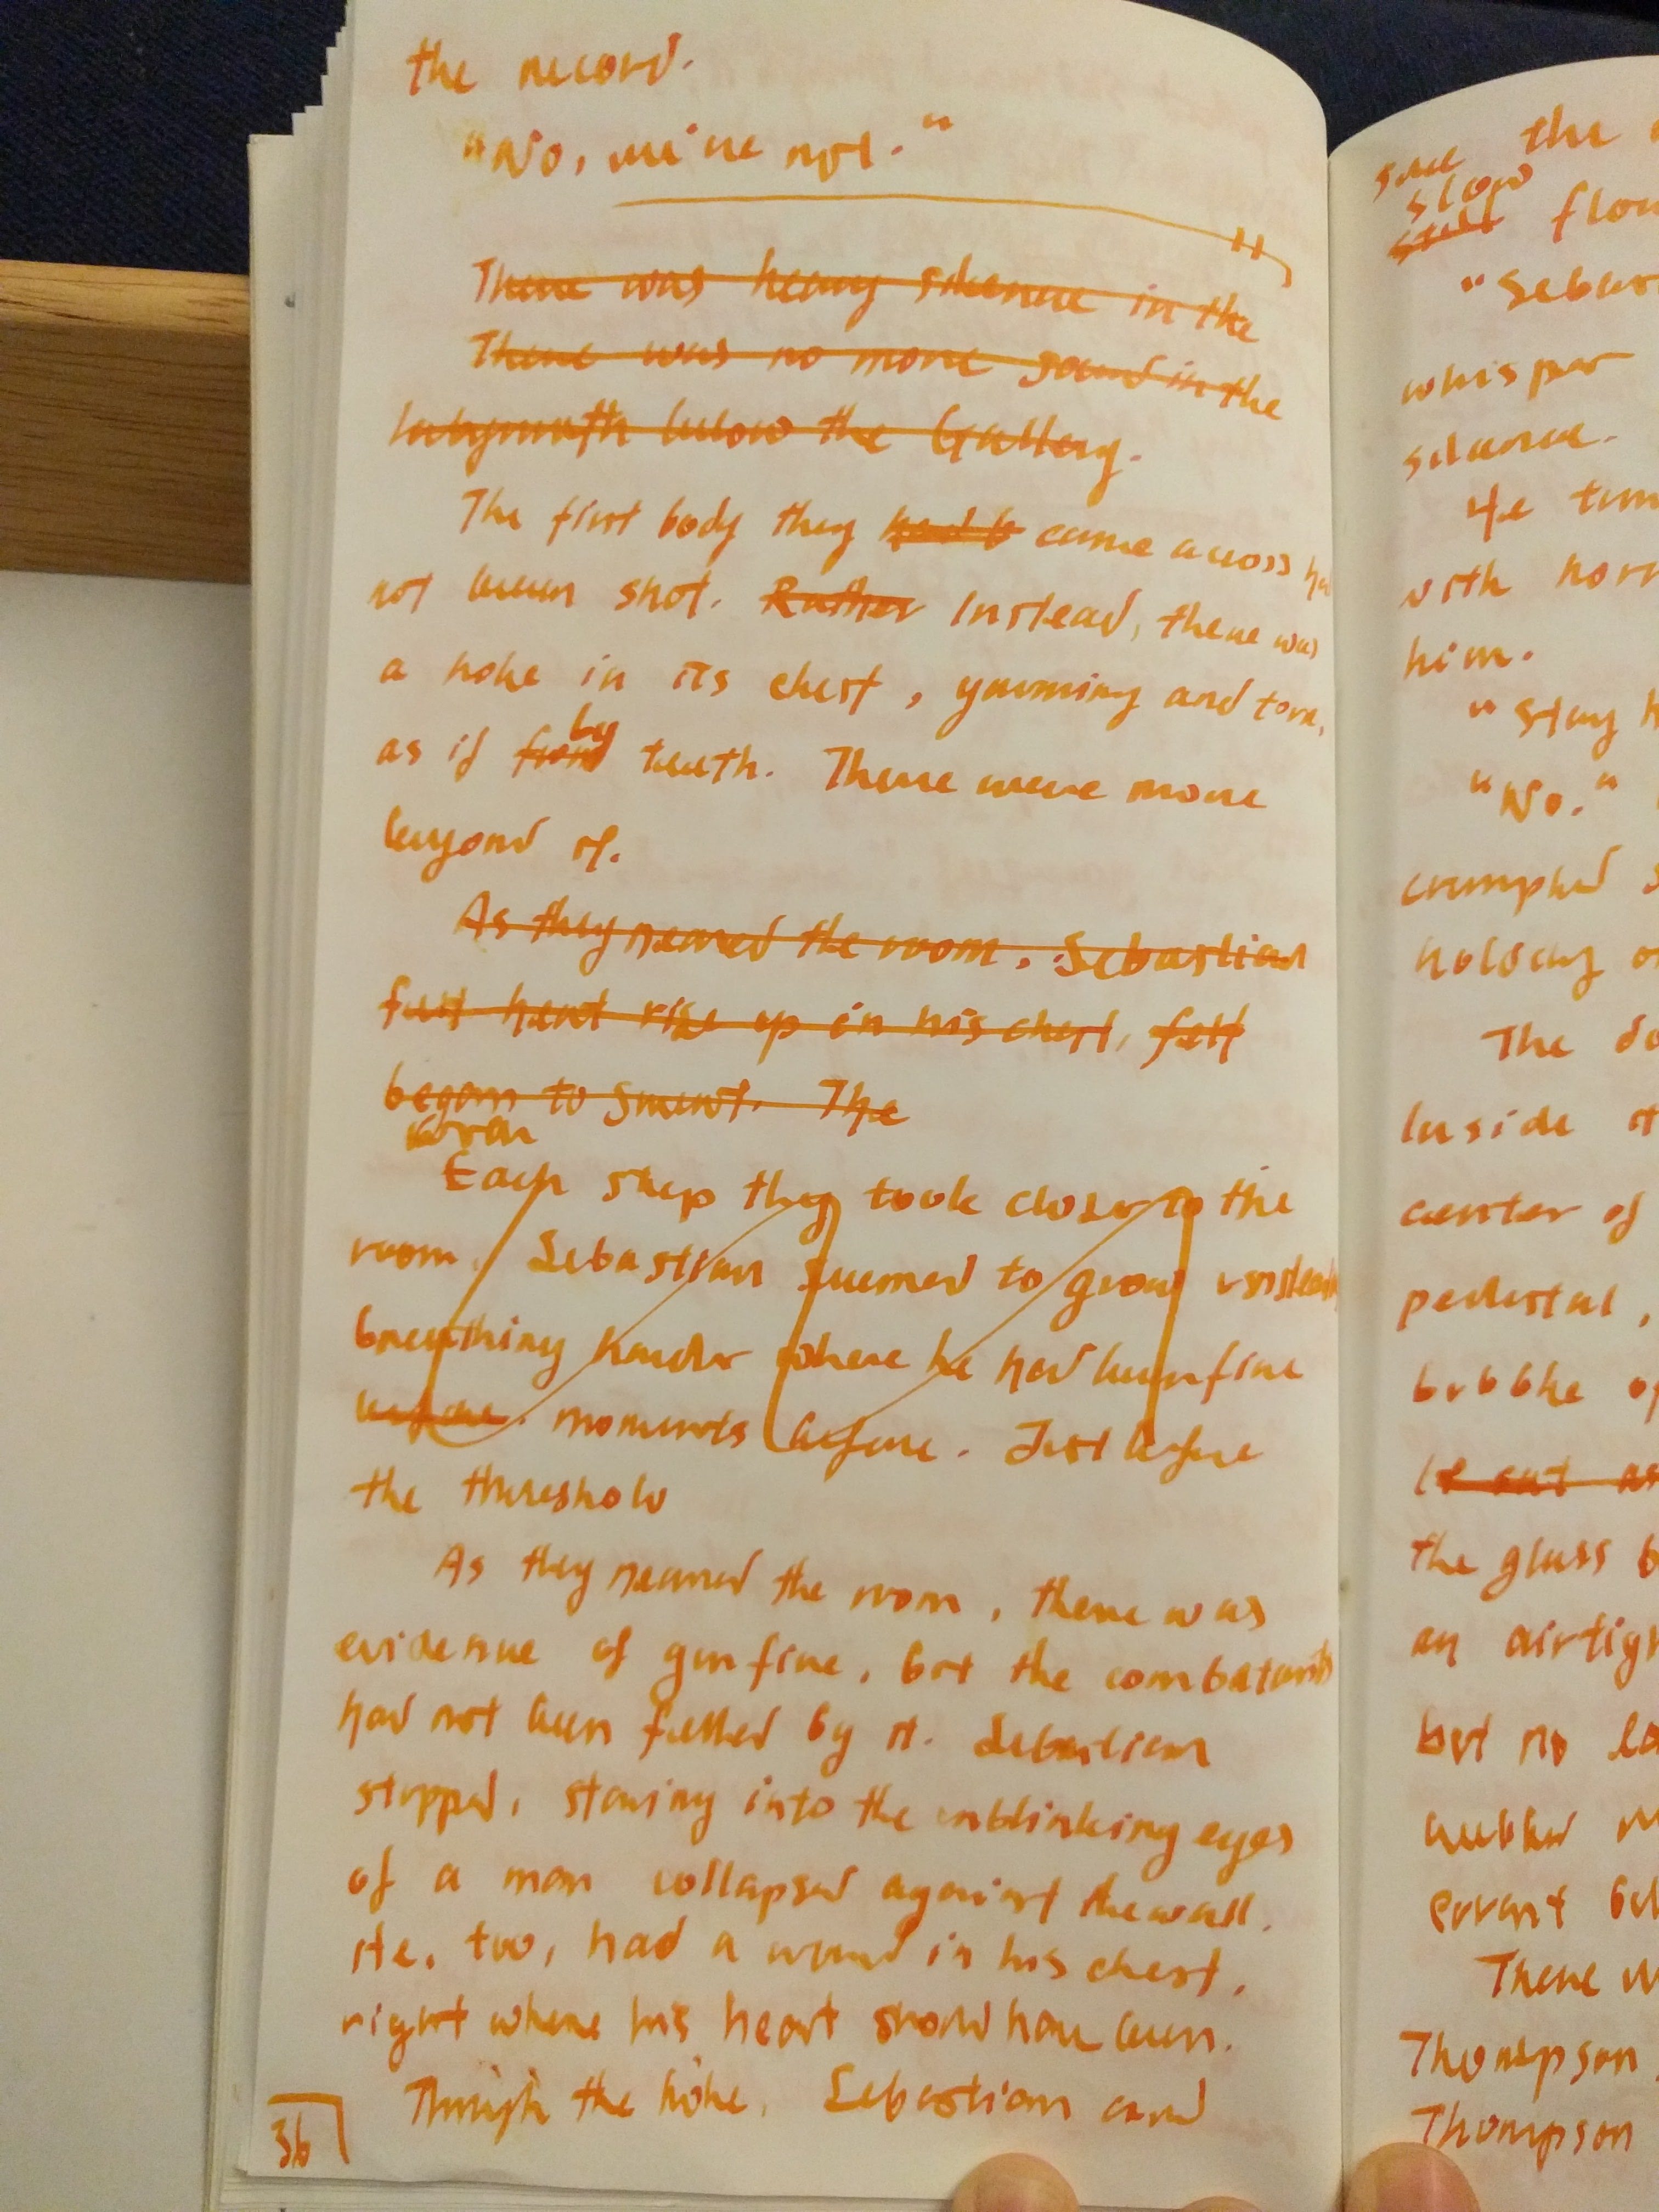 the record.
"No, we're not."
There was heavy silence in the
There was no more sound in the
labyrinth below the Gallery.
The first body they had b came across had
not been shot. Rather Instead, there was
a hole in its chest, yawning and torn,
by
as if from teeth. There were more
beyond it.
As they neared the room, Sebastian
felt heat rise up in his chest, felt
began to smart. The
Each step they took closer to the
room, Sebastian seemed to grow unsteady,
breathing harder where he had been fine
before. moments before. Just before
the threshold
As they neared the room, there was
evidence of gunfire, but the combatants
had not been felled by it. Sebastian
stopped, staring into the unblinking eyes
of a man collapsed against the wall.
He, too, had a wound in his chest,
right where his heart should have been.
Through the hole, Sebastian could
36
see the
slow
still flow
"Sebast
whisper
silence.
He turn
with horr
him.
"Stay h
"No."
crumpled s
holding
The do
Inside it
center of
pedestal,
bubble of
It sat as
the glass b
an airtigh
but no
errant
There w
Thompson
Thompson